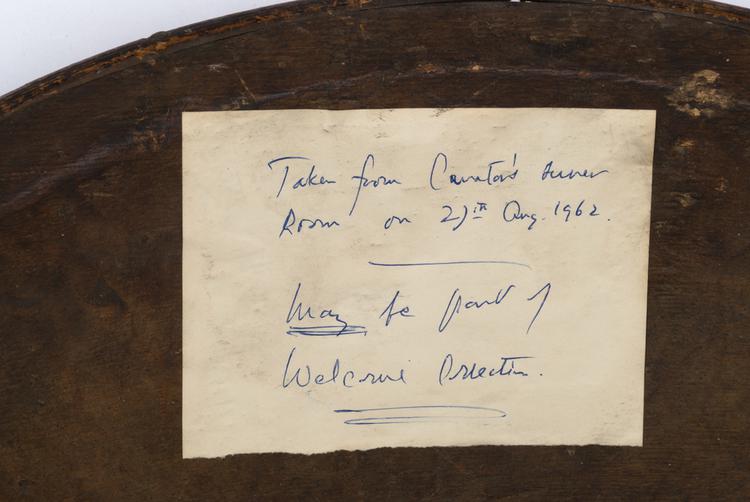 Taken from Curator's inner
Room on 27th Aug. 1962.
May be part of
Welcome Collection.